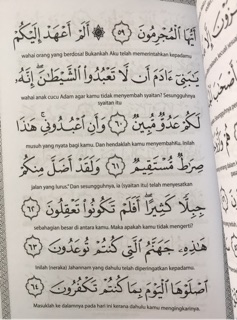 أَيُّهَا ٱلْمُجْرِمُونَ ﴿٥٩﴾ أَلَمْ أَعْهَدْ إِلَيْكُمْ
wahai orang yang berdosa! Bukankah Aku telah memerintahkan kepadamu
يَٰبَنِىٓ ءَادَمَ أَن لَّا تَعْبُدُوا۟ ٱلشَّيْطَٰنَ إِنَّهُۥ
wahai anak cucu Adam agar kamu tidak menyembah syaitan? Sesungguhnya
syaitan itu
لَكُمْ عَدُوٌّ مُّبِينٌ ﴿٦٠﴾ وَأَنِ ٱعْبُدُونِى هَٰذَا
musuh yang nyata bagi kamu. Dan hendaklah kamu menyembahKu, Inilah
صِرَٰطٌ مُّسْتَقِيمٌ ﴿٦١﴾ وَلَقَدْ أَضَلَّ مِنكُمْ
jalan yang lurus." Dan sesungguhnya, ia (syaitan itu) telah menyesatkan
جِبِلًّا كَثِيرًا أَفَلَمْ تَكُونُوا۟ تَعْقِلُونَ ﴿٦٢﴾
sebahagian besar di antara kamu. Maka apakah kamu tidak mengerti?
هَٰذِهِۦ جَهَنَّمُ ٱلَّتِى كُنتُمْ تُوعَدُونَ ﴿٦٣﴾
Inilah (neraka) Jahannam yang dahulu telah diperingatkan kepadamu.
ٱصْلَوْهَا ٱلْيَوْمَ بِمَا كُنتُمْ تَكْفُرُونَ ﴿٦٤﴾
Masuklah ke dalamnya pada hari ini kerana dahulu kamu mengingkarinya.